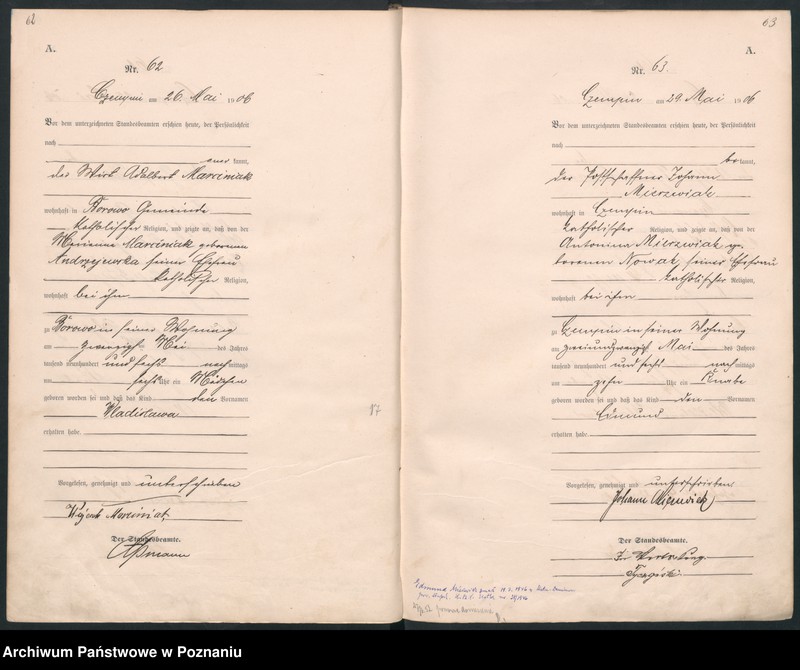 62
A.
Nr. 62
Czempin am 26. Mai 1906
Vor dem unterzeichneten Standesbeamten erschien heute, der Persönlichkeit
nach
kannt,
der Wirt Adalbert Marciniak
wohnhaft in Borowo Gemeinde
katholischer Religion, und zeigte an, daß von der
Marianna Marciniak geborenen
Andrzejewska seiner Ehefrau
katholischer Religion,
wohnhaft bei ihm
zu Borowo in seiner Wohnung
am zwanzigsten Mai des Jahres
tausend neunhundert und sechs nachmittags
um sechs Uhr ein Mädchen
geboren worden sei und daß das Kind den Vornamen
Wladislawa
erhalten habe.
Vorgelesen, genehmigt und unterschrieben
Wojciech Marciniak
Der Standesbeamte.
17
63
A.
Nr. 63.
Czempin am 29. Mai 1906
Vor dem unterzeichneten Standesbeamten erschien heute, der Persönlichkeit
nach
bekannt,
der Postschaffner Johann
Mierzwiak
wohnhaft in Czempin
katholischer Religion, und zeigte an, daß von der
Antonina Mierzwiak ge-
borenen Nowak, seiner Ehefrau
katholischer Religion,
wohnhaft bei ihm
zu Czempin in seiner Wohnung
am zweiundzwanzigsten Mai des Jahres
tausend neunhundert und sechs nachmittags
um zehn Uhr ein Knabe
geboren worden sei und daß das Kind den Vornamen
Edmund
erhalten habe.
Vorgelesen, genehmigt und unterschrieben
Johann Mierzwiak
Der Standesbeamte.
In Vertretung
Edmund
Archiwum Państwowe w Poznaniu